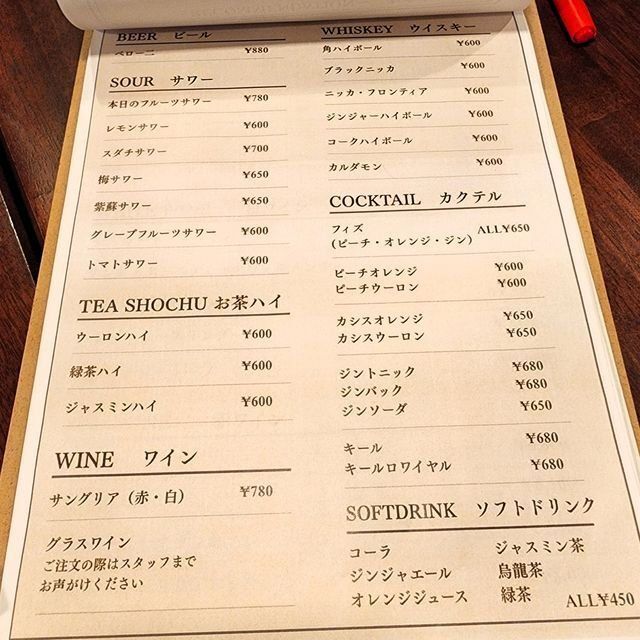 BEER　ビール
ペローニ ¥880
SOUR　サワー
本日のフルーツサワー ¥780
レモンサワー ¥600
スダチサワー ¥700
梅サワー ¥650
紫蘇サワー ¥650
グレープフルーツサワー ¥600
トマトサワー ¥600
TEA SHOCHU お茶ハイ
ウーロンハイ ¥600
緑茶ハイ ¥600
ジャスミンハイ ¥600
WINE　ワイン
サングリア（赤・白） ¥780
グラスワイン
ご注文の際はスタッフまで
お声がけください
WHISKEY　ウイスキー
角ハイボール ¥600
ブラックニッカ ¥600
ニッカ・フロンティア ¥600
ジンジャーハイボール ¥600
コークハイボール ¥600
カルダモン ¥600
COCKTAIL　カクテル
フィズ ALL¥650
（ピーチ・オレンジ・ジン）
ピーチオレンジ ¥600
ピーチウーロン ¥600
カシスオレンジ ¥650
カシスウーロン ¥650
ジントニック ¥680
ジンバック ¥680
ジンソーダ ¥650
キール ¥680
キールロワイヤル ¥680
SOFTDRINK　ソフトドリンク
コーラ ジャスミン茶
ジンジャエール 烏龍茶
オレンジジュース 緑茶 ALL¥450